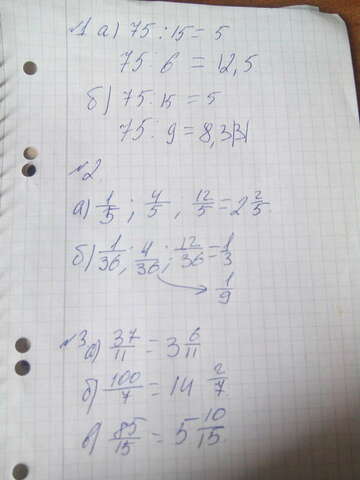 №1 а) 75 : 15 = 5
75 : 6 = 12,5
б) 75 : 15 = 5
75 : 9 = 8,3|3|
№2.
а) 1/5 ; 4/5 ; 12/5 = 2 2/5.
б) 1/36 ; 4/36 ; 12/36 = 1/3
1/9
№3 а) 37/11 = 3 6/11
б) 100/7 = 14 2/7.
в) 85/15 = 5 10/15.